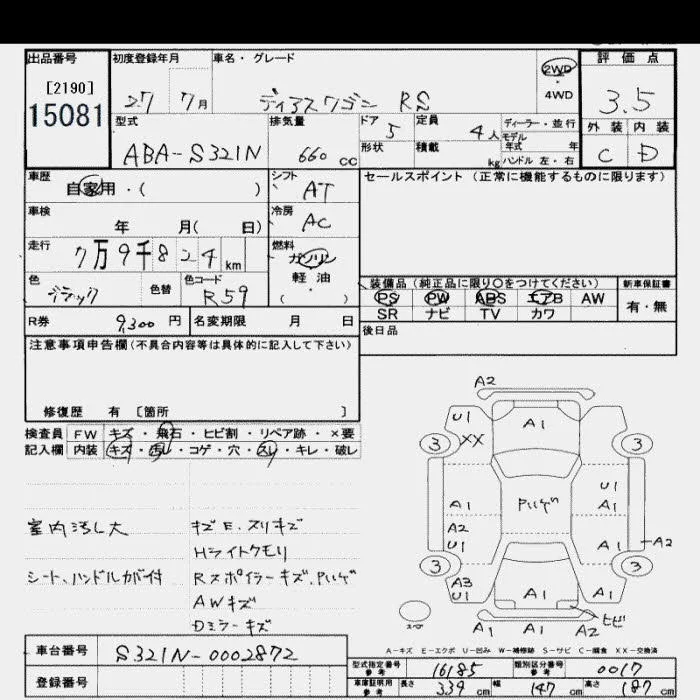 出品番号 初度登録年月 車名・グレード 評価点
[2190] 2WD
15081 27 7月 ディアスワゴン RS ・4WD 3.5
型式 排気量 ドア 5 定員 4人 ディーラー・並行 外装 内装
モデル年式 年
ABA-S321N 660 CC 形状 積載 kg ハンドル 左・右 C D
車歴 シフト セールスポイント (正常に機能するものに限ります)
自家用・( ) AT
車検 冷房
年 月( 日) AC
走行 7万9千824km 燃料 ガソリン
軽油
色 色替 色コード ・
ブラック R59 ( )
装備品 (純正品に限り○をつけてください) 新車保証書
PS PW ABS エアB AW 有・無
SR ナビ TV カワ
R券 9,300円 名変期限 月 日
後日品
注意事項申告欄(不具合内容等は具体的に記入して下さい)
修復歴 有 [箇所 ]
検査員 FW キズ・飛石・ヒビ割・リペア跡・×要
記入欄 内装 キズ・汚レ・コゲ・穴・スレ・キレ・破レ
室内汚レ大 キズE.スリキズ
Hライトクモリ
シート、ハンドルカバー付 Rスポイラーキズ.Pハゲ
AWキズ
Dミラーキズ
A2
U1 A1
XX
3 3
Pハゲ U1
A1 A1
A2
U1 A1 A2
3 3
A3
U1 A1 A1
ヒビ
A1 A1 A2
A-キズ E-エクボ U-凹み W-補修跡 S-サビ C-腐食 XX-交換済
車台番号 S321N-0002872
登録番号
型式指定番号 参考 16185 類別区分番号 参考 0017
車庫証明用 参考 長さ 339 cm 幅 147 cm 高さ 187 cm